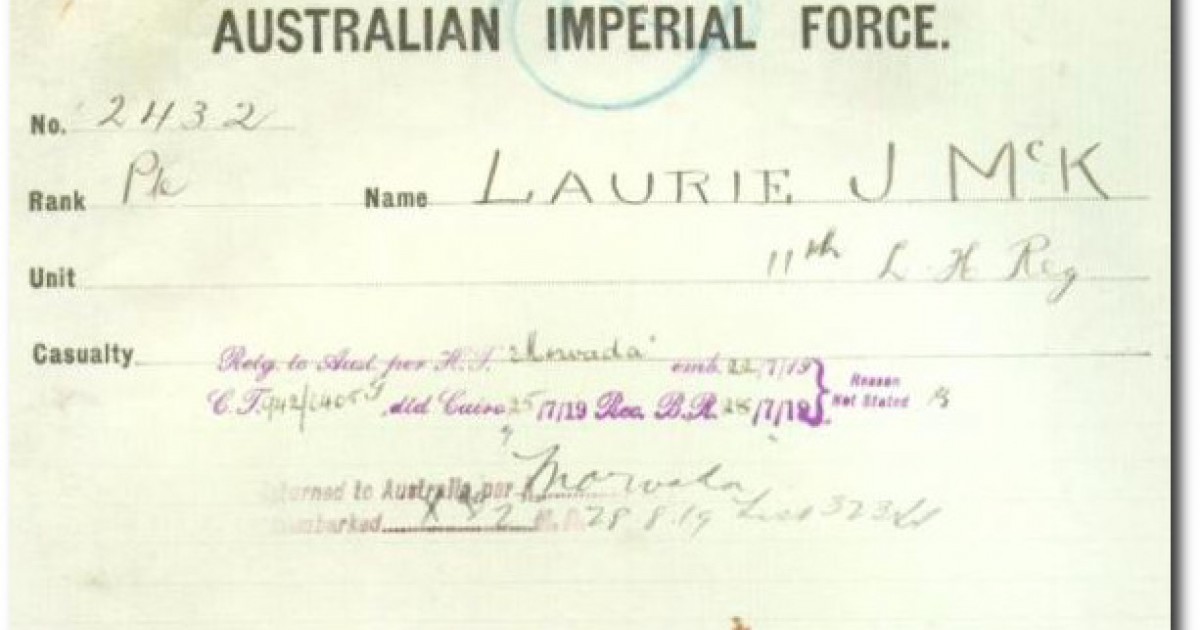 AUSTRALIAN IMPERIAL FORCE.
No. 2432
Rank Pte Name LAURIE J McK
Unit 11th L. H Reg
Casualty
Retg. to Aust. per H.T. "Morvada" emb. 22/7/19
C.T. 942/ dtd Cairo 25/7/19 Rec. B.R. 28/7/19. Reason Not Stated
turned to Australia per "Morvada"
mbarked M.D. 28 8.19 List 323